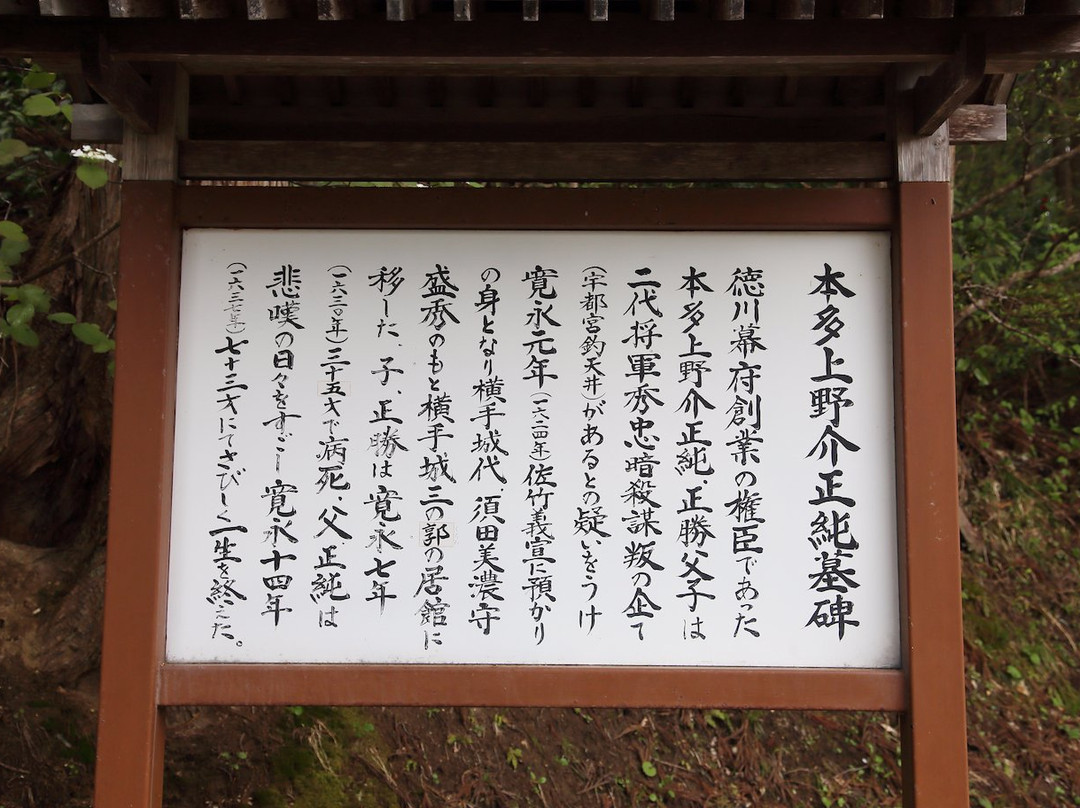 本多上野介正純墓碑
徳川幕府創業の権臣であった
本多上野介正純、正勝父子は
二代将軍秀忠暗殺謀叛の企て
（宇都宮釣天井）があるとの疑いをうけ
寛永元年（一六二四年）佐竹義宣に預かり
の身となり横手城代、須田美濃守
盛秀のもと横手城三の郭の居館に
移した、子、正勝は寛永七年
（一六三〇年）三十五才で病死、父正純は
悲嘆の日々をすごし寛永十四年
（一六三七年）七十三才にてさびしく一生を終えた。